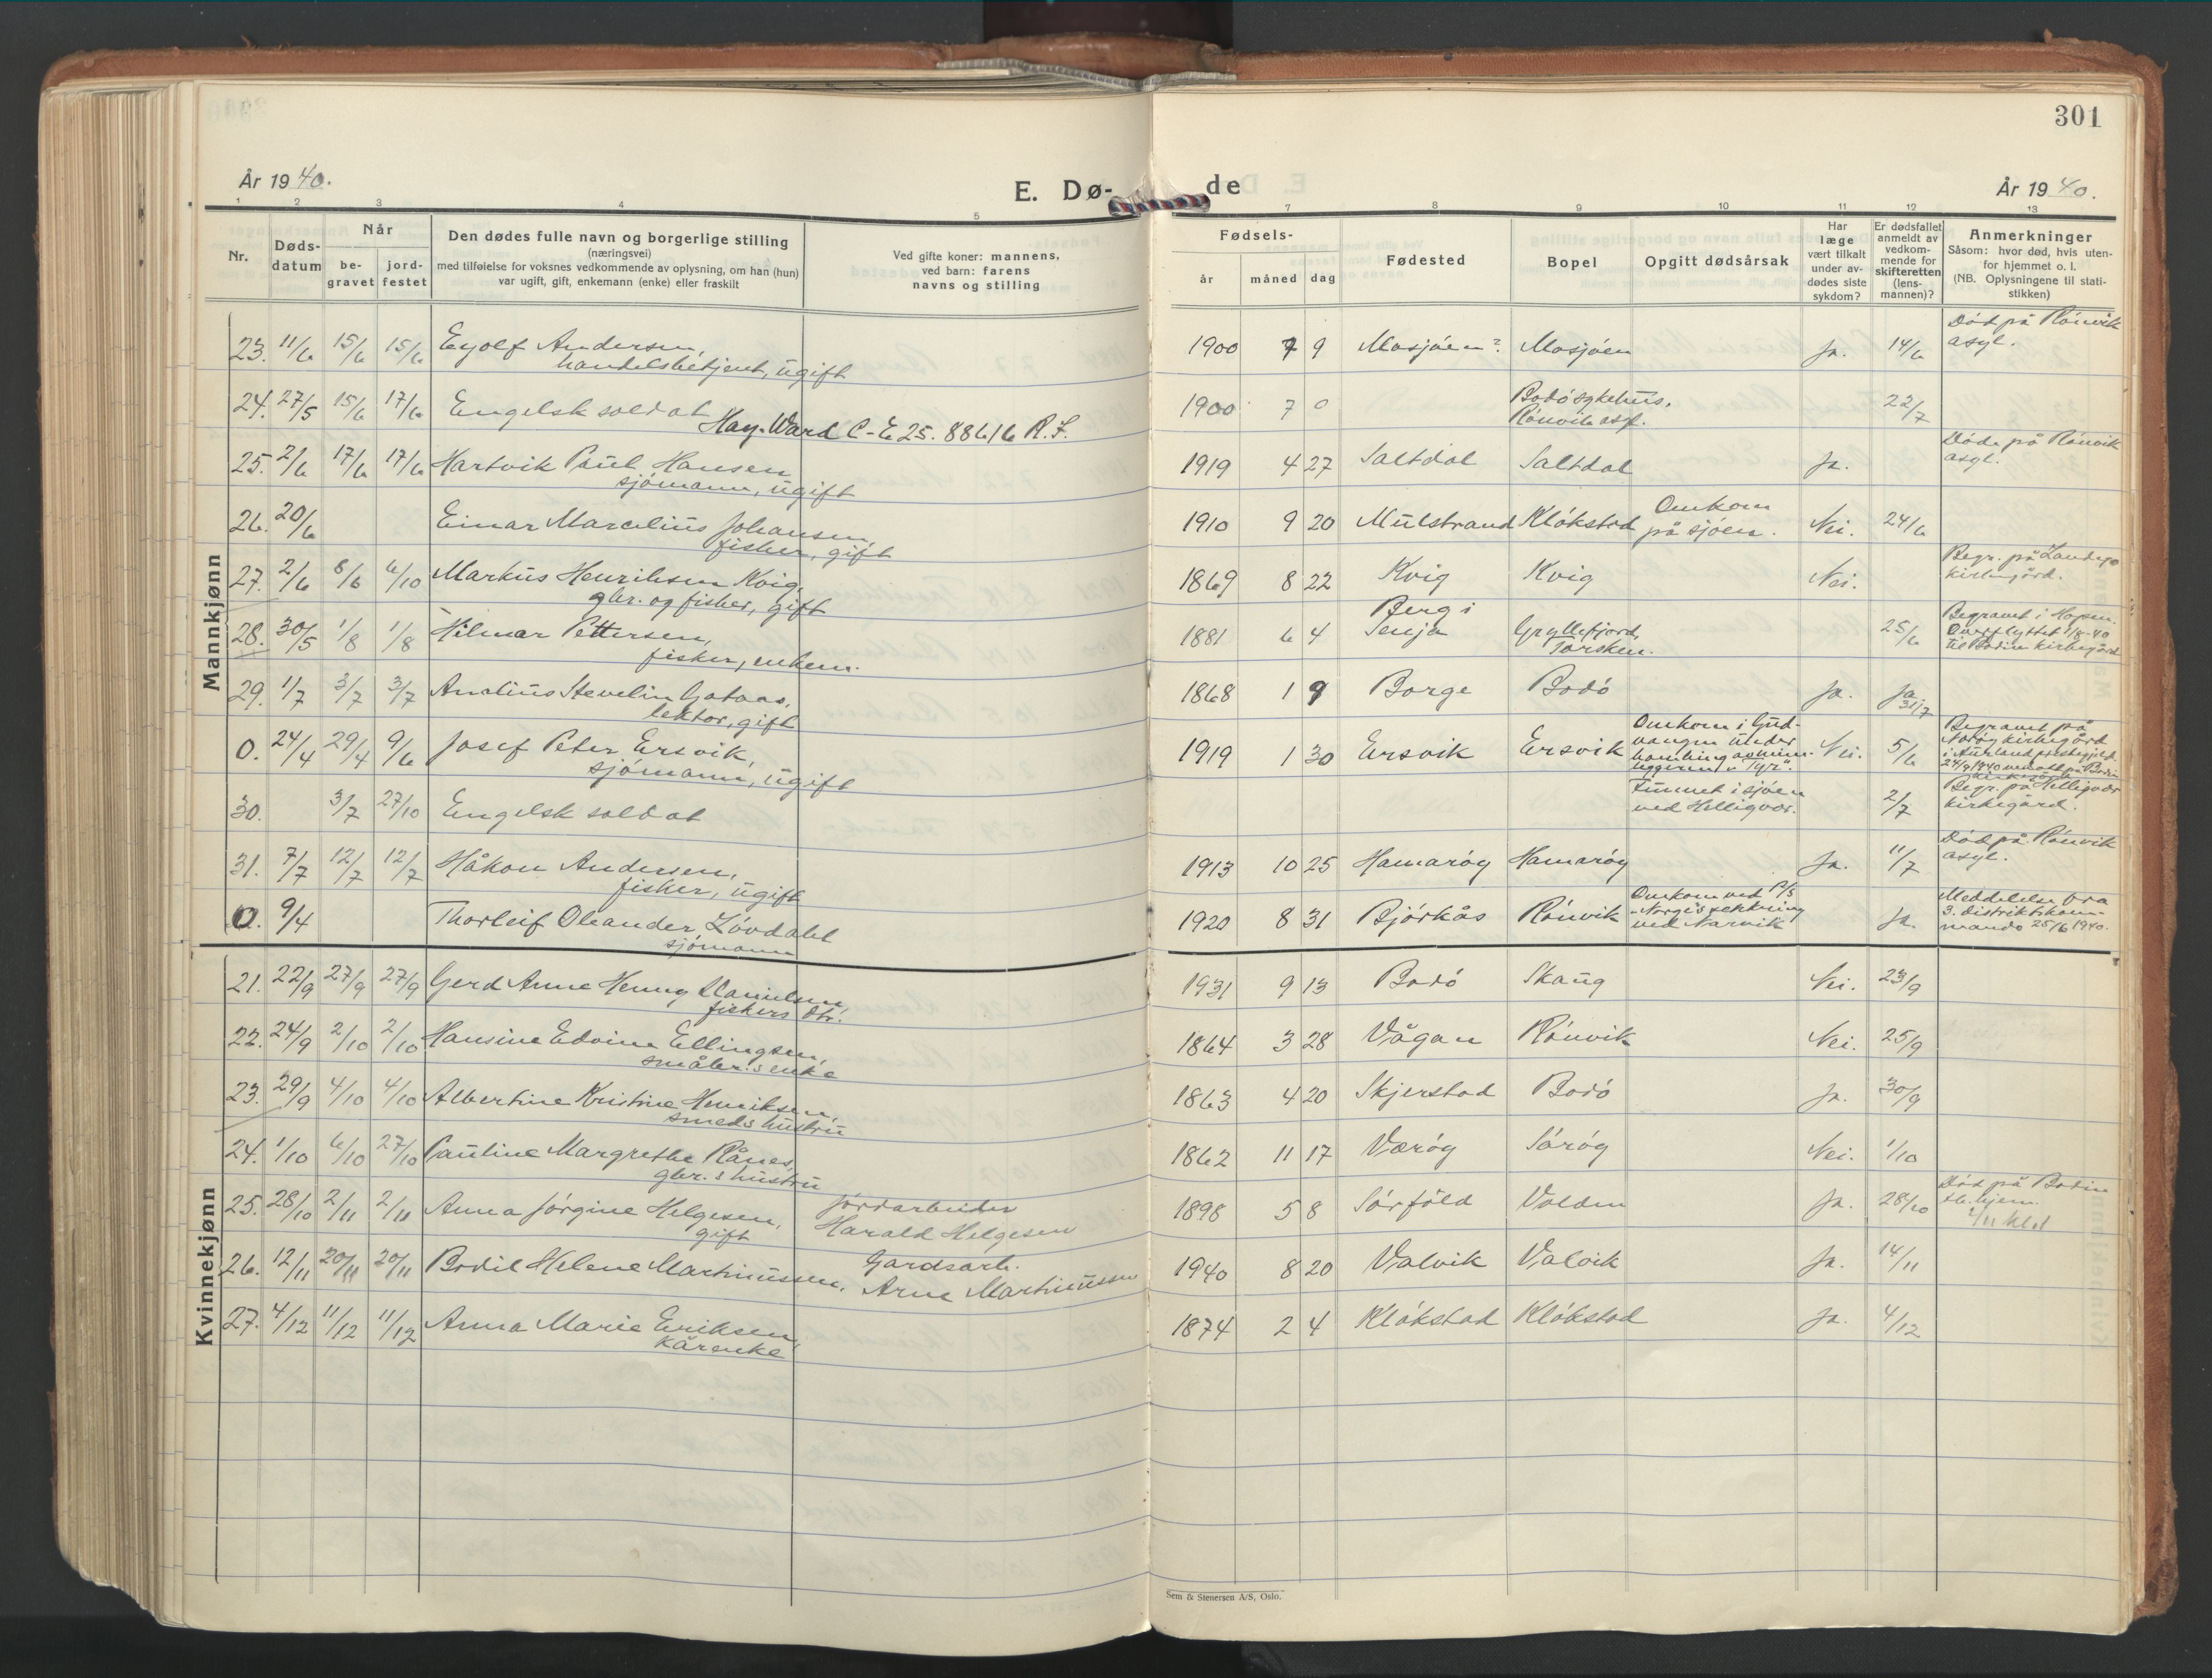 301
År 1940.
E. Dø-
de
År 1940.
1 2 3 4 5 7 8 9 10 11 12 13
Nr.
Døds-
datum
Når
be-
gravet
jord-
festet
Den dødes fulle navn og borgerlige stilling
(næringsvei)
med tilføielse for voksnes vedkommende av oplysning, om han (hun)
var ugift, gift, enkemann (enke) eller fraskilt
Ved gifte koner: mannens,
ved barn: farens
navns og stilling
Fødsels-
år måned dag
Fødested
Bopel
Opgitt dødsårsak
Har
læge
vært tilkalt
under av-
dødes siste
sykdom?
Er dødsfallet
anmeldt av
vedkom-
mende for
skifteretten
(lens-
mannen)?
Anmerkninger
Såsom: hvor død, hvis uten-
for hjemmet o. l.
(NB. Oplysningene til stati-
stikken)
Mannkjønn
23. 11/6 15/6 15/6 Eyolf Andersen, 1900 7 9 Mosjøen? Mosjøen Ja. 14/6 Død på Rønvik
handelsbetjent, ugift asyl.
24. 27/5 15/6 17/6 Engelsk soldat 1900 7 0 Bodø sykehus, 22/7
Hay-Ward C-E25. 88616 R.F. Rønvik asyl.
25. 2/6 17/6 17/6 Hartvik Paul Hansen 1919 4 27 Saltdal Saltdal Ja. Døde på Rønvik
sjømann, ugift asyl.
26. 20/6 Einar Marcelius Johansen, 1910 9 20 Mulstrand Kløkstad Omkom Nei. 24/6
fisker, gift på sjøen.
27. 2/6 8/6 6/10 Markus Henriksen Kvig, 1869 8 22 Kvig Kvig Nei. Begr. på Landego
gbr. og fisker, gift kirkegård.
28. 30/5 1/8 1/8 Hilmar Pettersen, 1881 6 4 Berg i Gryllefjord, 25/6 Begravet i Hopen.
fisker, enkem. Senja Torsken. Overflyttet 1/8-40
til Bodin kirkegård
29. 1/7 3/7 3/7 Analius Stevelin Gataas, 1868 1 9 Borge Bodø Ja. Ja 31/7
lektor, gift
0. 24/4 29/4 9/6 Josef Peter Ersvik, 1919 1 30 Ersvik Ersvik Omkom i Gud- Nei. 5/6 Begravet på
sjømann, ugift vangen under Nærøy kirkegård
hamling av minn- i Aurland prestegjeld
uggeren "Tyr". 24/9 1940 nedsatt på Bodin
kirkegård
30. 3/7 27/10 Engelsk soldat Funnet i sjøen 2/7 Begr. på Helligvær
ved Helligvær. kirkegård.
31. 7/7 12/7 12/7 Håkon Andersen, 1913 10 25 Hamarøy Hamarøy Ja. 11/7 Død på Rønvik
fisker, ugift asyl.
0. 9/4 Thorleif Oleander Løvdahl 1920 8 31 Bjørkås Rønvik Omkom ved P/S Ja. Meddelelse fra
sjømann "Norge"s sekkning 3. distriktskom-
ved Narvik mando 25/6 1940.
Kvinnekjønn
21. 22/9 27/9 27/9 Gerd Anne Henny Danielsen, 1931 9 13 Bodø Skaug Nei. 23/9
fiskers dtr.
22. 24/9 2/10 2/10 Hansine Edvine Ellingsen, 1864 3 28 Vågan Rønvik Nei. 25/9
småbr.s enke
23. 29/9 4/10 4/10 Albertine Kristine Henriksen, 1863 4 20 Skjerstad Bodø Ja. 30/9
smeds hustru
24. 1/10 6/10 27/10 Pauline Margrethe Rånes, 1862 11 17 Værøy Sørøy Nei. 1/10
gbr.s hustru
25. 28/10 2/11 2/11 Anna Jørgine Helgesen, Jordarbeider 1898 5 8 Sørfold Valden Ja. 28/10 Død på Bodin
gift Harald Helgesen hjem.
26. 12/11 20/11 20/11 Bodil Helene Martinussen, Gardsarb. 1940 8 20 Valvik Valvik Ja. 14/11
Arne Martinussen
27. 4/12 11/12 11/12 Anna Marie Eriksen, 1874 2 4 Kløkstad Kløkstad Ja. 4/12
Kårenke
Sem & Stenersen A/S, Oslo.